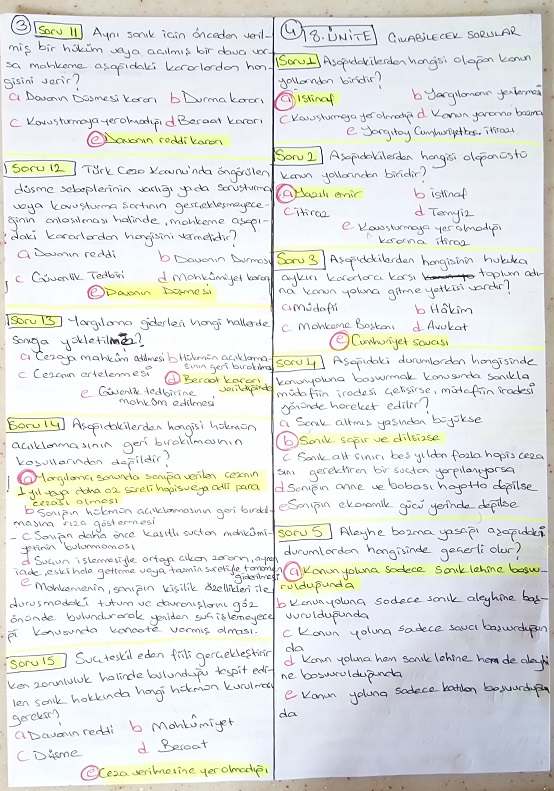 ③ Soru 11 Aynı sanık için önceden veril-
miş bir hüküm veya açılmış bir dava var-
sa mahkeme aşağıdaki kararlardan han-
gisini verir?
a Davanın Düşmesi kararı b Durma kararı
c Kovuşturmaya yer olmadığı d Beraat kararı
e Davanın reddi kararı
Soru 12 Türk Ceza Kanunu'nda öngörülen
düşme sebeplerinin varlığı ya da soruşturma
veya kovuşturma şartının gerçekleşmeyece-
ğinin anlaşılması halinde, mahkeme aşağı-
daki kararlardan hangisini vermelidir?
a Davanın reddi b Davanın Durması
c Güvenlik Tedbiri d Mahkûmiyet kararı
e Davanın Düşmesi
Soru 13 Yargılama giderleri hangi hallerde
sanığa yükletilmez?
a Cezaya mahkûm edilmesi b Hükmün açıklanma-
sının geri bırakılması
c Cezanın ertelenmesi d Beraat kararı
verildiğinde
e Güvenlik tedbirine
mahkûm edilmesi
Soru 14 Aşağıdakilerden hangisi hükmün
açıklanmasının geri bırakılmasının
koşullarından değildir?
a Yargılama sonunda sanığa verilen cezanın
1 yıl veya daha az süreli hapis veya adli para
cezası olması
b Sanığın hükmün açıklanmasının geri bırakıl-
masına rıza göstermesi
c Sanığın daha önce kasıtlı suçtan mahkûmi-
yetinin bulunmaması
d Suçun işlenmesiyle ortaya çıkan zararın, aynen
iade, eski hale getirme veya tazmin suretiyle tamamen
giderilmesi
e Mahkemenin, sanığın kişilik özellikleri ile
duruşmadaki tutum ve davranışlarını göz
önünde bulundurarak yeniden suç işlemeyece
ği konusunda kanaate varmış olması.
Soru 15 Suç teşkil eden fiili gerçekleştirir
ken zorunluluk halinde bulunduğu tespit edi-
len sanık hakkında hangi hükmün kurulması
gerekir?
a Davanın reddi b Mahkûmiyet
c Düşme d Beraat
e Ceza verilmesine yer olmadığı
④ 8. ÜNİTE ÇIKABİLECEK SORULAR
Soru 1 Aşağıdakilerden hangisi olağan kanun
yollarından biridir?
a İstinaf b Yargılamanın yenilenmesi
c Kovuşturmaya yer olmadığı d Kanun yararına bozma
e Yargıtay Cumhuriyet Baş. itirazı
Soru 2 Aşağıdakilerden hangisi olağanüstü
kanun yollarından biridir?
a Yazılı emir b istinaf
c itiraz d Temyiz
e Kovuşturmaya yer olmadığı
kararına itiraz
Soru 3 Aşağıdakilerden hangisinin hukuka
aykırı kararlara karşı toplum adı-
na kanun yoluna gitme yetkisi vardır?
a müdafii b Hâkim
c Mahkeme Başkanı d Avukat
e Cumhuriyet savcısı
Soru 4 Aşağıdaki durumlardan hangisinde
kanun yoluna başvurmak konusunda sanıkla
müdafiin iradesi çelişirse, müdafiin iradesi
yönünde hareket edilir?
a Sanık altmış yaşından büyükse
b Sanık sağır ve dilsizse
c Sanık alt sınırı beş yıldan fazla hapis ceza
sını gerektiren bir suçtan yargılanıyorsa
d Sanığın anne ve babası hayatta değilse
e Sanığın ekonomik gücü yerinde değilse
Soru 5 Aleyhe bozma yasağı aşağıdaki
durumlardan hangisinde geçerli olur?
a Kanun yoluna sadece sanık lehine başvu-
rulduğunda
b Kanun yoluna sadece sanık aleyhine baş-
vurulduğunda
c Kanun yoluna sadece savcı başvurduğun
da
d Kanun yoluna hem sanık lehine hem de aleyhi
ne başvurulduğunda
e Kanun yoluna sadece katılan başvurduğun
da